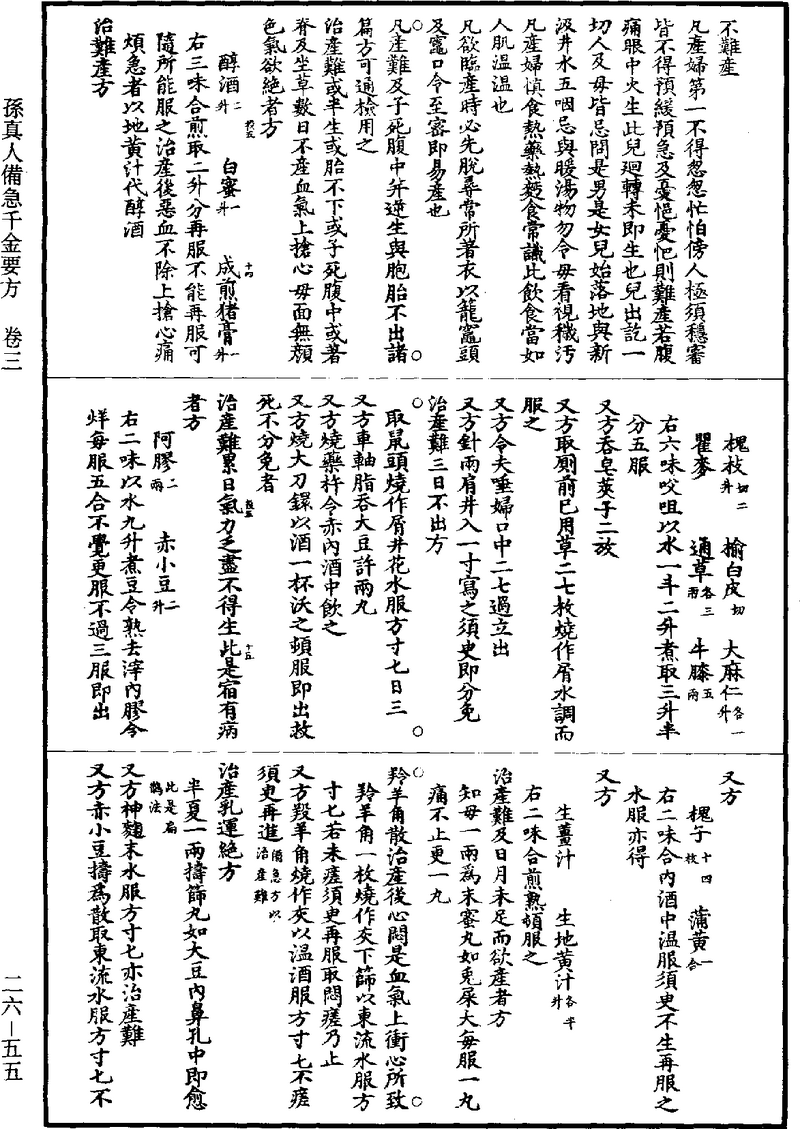 孫真人備急千金要方　卷三
不難產
凡產婦第一不得忽忽忙怕傍人極須穩審
皆不得預緩預急及憂悒憂悒則難產若腹
痛眼中火生此兒廻轉未即生也兒出訖一
切人及母皆忌問是男是女兒始落地與新
汲井水五咽忌與暖湯物勿令母看視穢汚
凡產婦慎食熱藥熱麪食常識此飲食當如
人肌溫溫也
凡欲臨產時必先脫尋常所著衣以籠竈頭
及竈口令至密即易產也
○凡產難及子死腹中并逆生與胞胎不出諸○
篇方可通檢用之
治產難或半生或胎不下或子死腹中或著
脊及坐草數日不產血氣上搶心母面無顏
色氣欲絕者方
醇酒二升　白蜜一升　成煎猪膏一升
右三味合煎取二升分再服不能再服可
隨所能服之治產後惡血不除上搶心痛
煩急者以地黃汁代醇酒
治難產方
槐枝切二升　榆白皮切　大麻仁各一升
瞿麥　通草各三兩　牛膝五兩
右六味㕮咀以水一斗二升煮取三升半
分五服
又方吞皂莢子二枚
又方取厠前已用草二七枚燒作屑水調而
服之
又方令夫唾婦口中二七過立出
又方針兩肩井入一寸寫之須臾即分免
治產難三日不出方
○取鼠頭燒作屑井花水服方寸匕日三○
又方車軸脂吞大豆許兩丸
又方燒藥杵令赤內酒中飲之
又方燒大刀鐶以酒一杯沃之頓服即出救
死不分免者
治產難累日氣力乏盡不得生此是宿有病
者方
阿膠二兩　赤小豆二升
右二味以水九升煮豆令熟去滓內膠令
烊每服五合不覺更服不過三服即出
又方
槐子十四枚　蒲黃一合
右二味合內酒中溫服須臾不生再服之
水服亦得
又方
生薑汁　生地黃汁各半升
右二味合煎熟頓服之
治產難及日月未足而欲產者方
知母一兩為末蜜丸如兔屎大每服一丸
痛不止更一丸
○羚羊角散治產後心悶是血氣上衝心所致○
羚羊角一枚燒作灰下篩以東流水服方
寸匕若未瘥須臾再服取悶瘥乃止
又方羖羊角燒作灰以溫酒服方寸匕不瘥
須臾再進備急方以治產難
治產乳運絕方
半夏一兩擣篩丸如大豆內鼻孔中即愈
此是扁鵲法
又方神麴末水服方寸匕亦治產難
又方赤小豆擣為散取東流水服方寸匕不
二六－五五